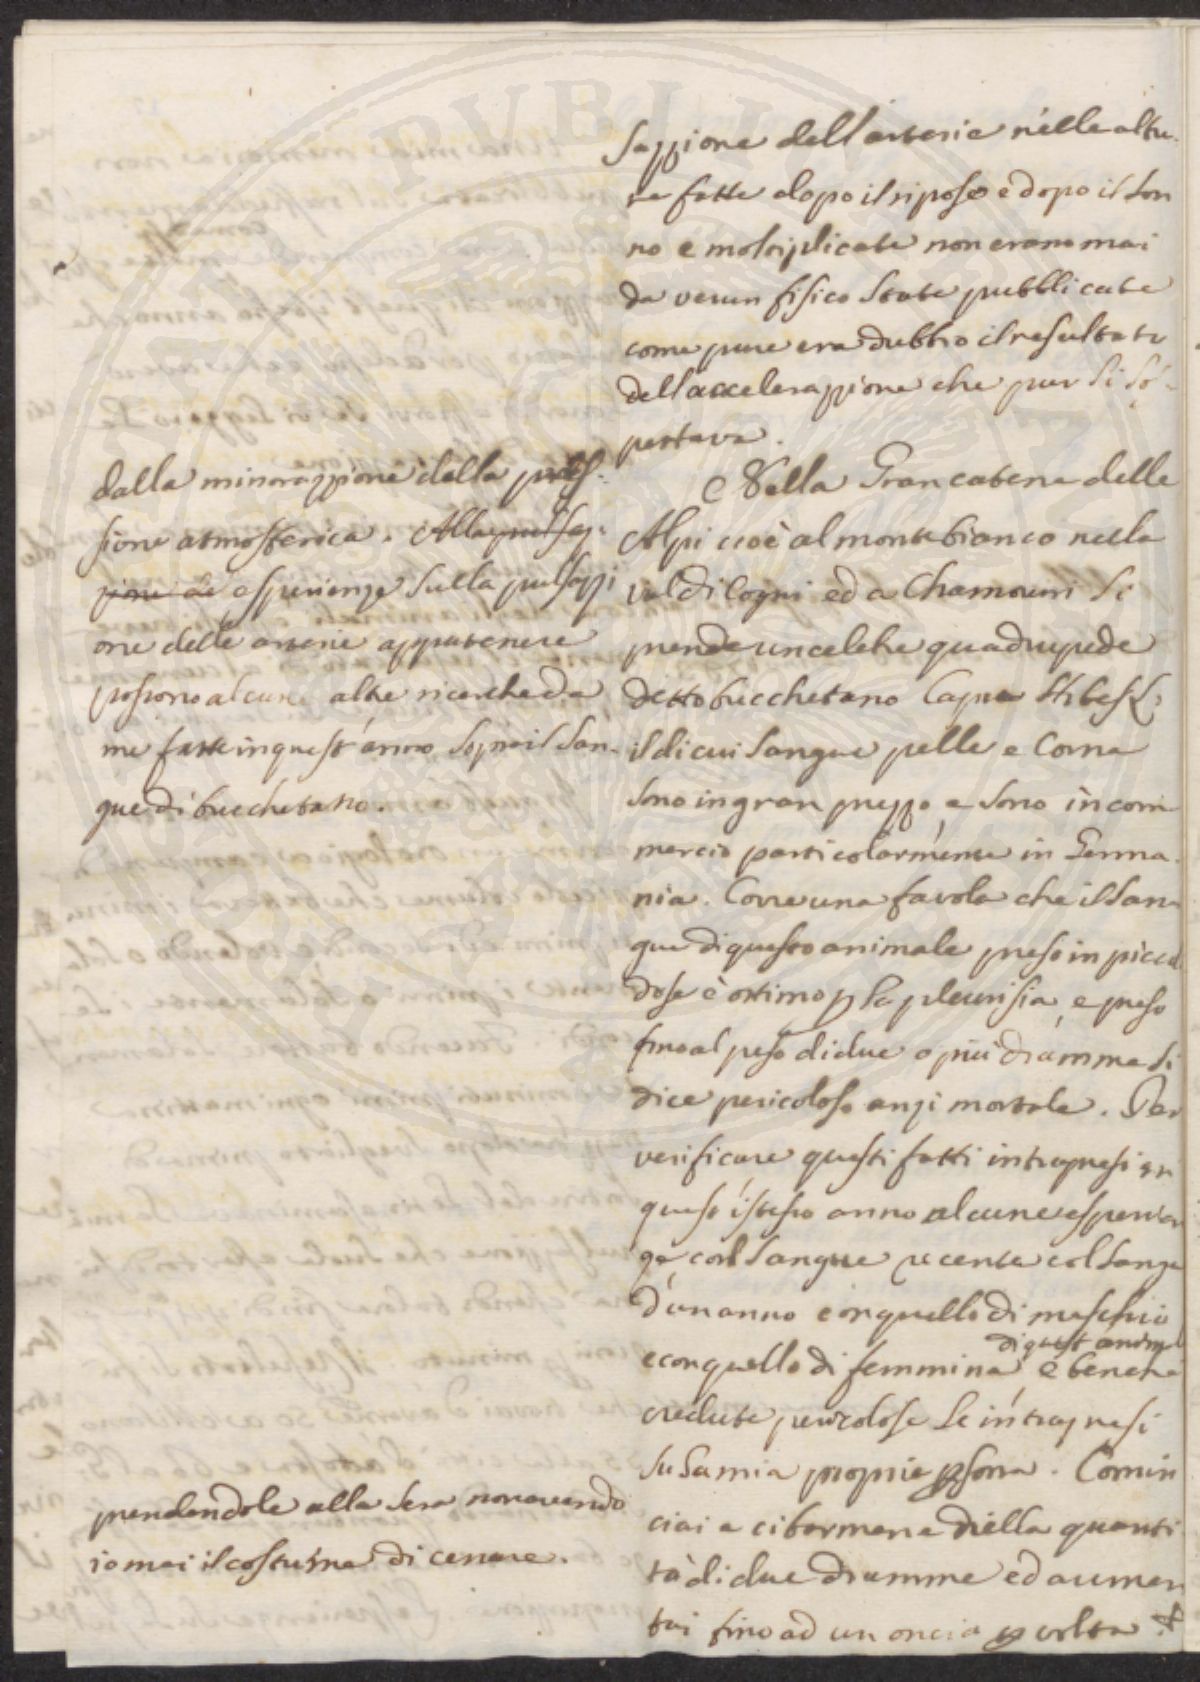 sazzione dell'arterie nelle altu-
re fatte dopo il riposo e dopo il son
no e moltiplicate non erano mai
da verun fisico state pubblicate
come pure era dubbio il resultato
dell'accelerazzione che pur si so-
pettava.
Nella Gran catena delle
Alpi cioè al monte bianco nella
val di Cogni ed a Chamouni si
prende un celebre quadrupede
detto bucchetano Capra Hibex L:
il di cui sangue pelle e Corna
sono in gran prezzo e sono in com
mercio particolarmente in Germa
nia. Corre una favola che il san
gue di questo animale preso in piccol
dose è ottimo p la pleurisia, e preso
fino al peso di due o più dramme si
dice pericoloso anzi mortale. Per
verificare questi fatti intrapresi in
quest'istesso anno alcune esperien
ze col sangue recente col sangue
d'un anno con quello di maschio
e con quello di femmina di quest animal e benche
credute pericolose le intrapresi
su la mia proprie psona. Comin
ciai a cibarmene della quanti
tà di due dramme ed aumen
tai fino ad un oncia p volta
dalla minorazzione della pres-
sione atmosferica. Alla pulsaz-
zione de esperienze sulla pulsazzi
one delle arterie appartenere
possono alcune altre ricerche da
me fatte in quest'anno sopra il san-
gue di bucchetano.
prendendole alla sera non avendo
io mai il costume di cenare.